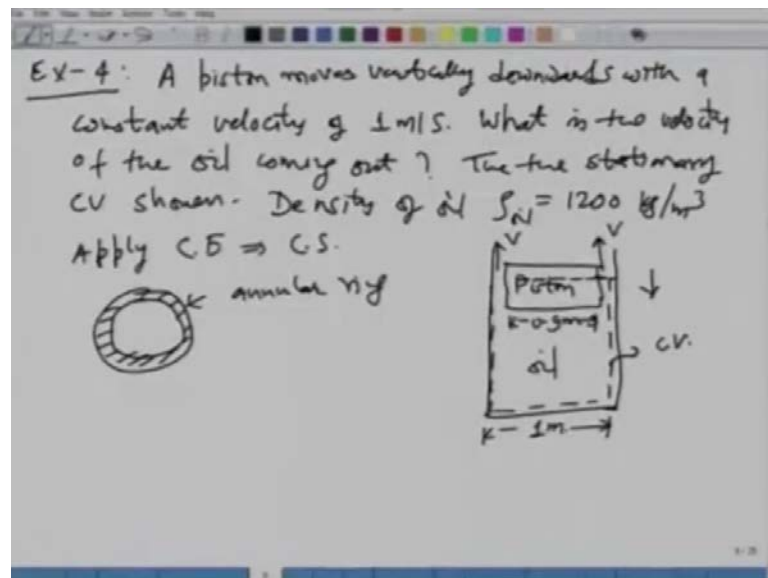 Ex-4: A piston moves vertically downwards with a
constant velocity of 1 m/s. What is the velocity
of the oil coming out? The the stationary
CV shown. Density of oil ρoil = 1200 kg/m³
Apply C.E ⇒ C.S.
annular ring
V V
Piston
0.9m
oil
CV.
1m